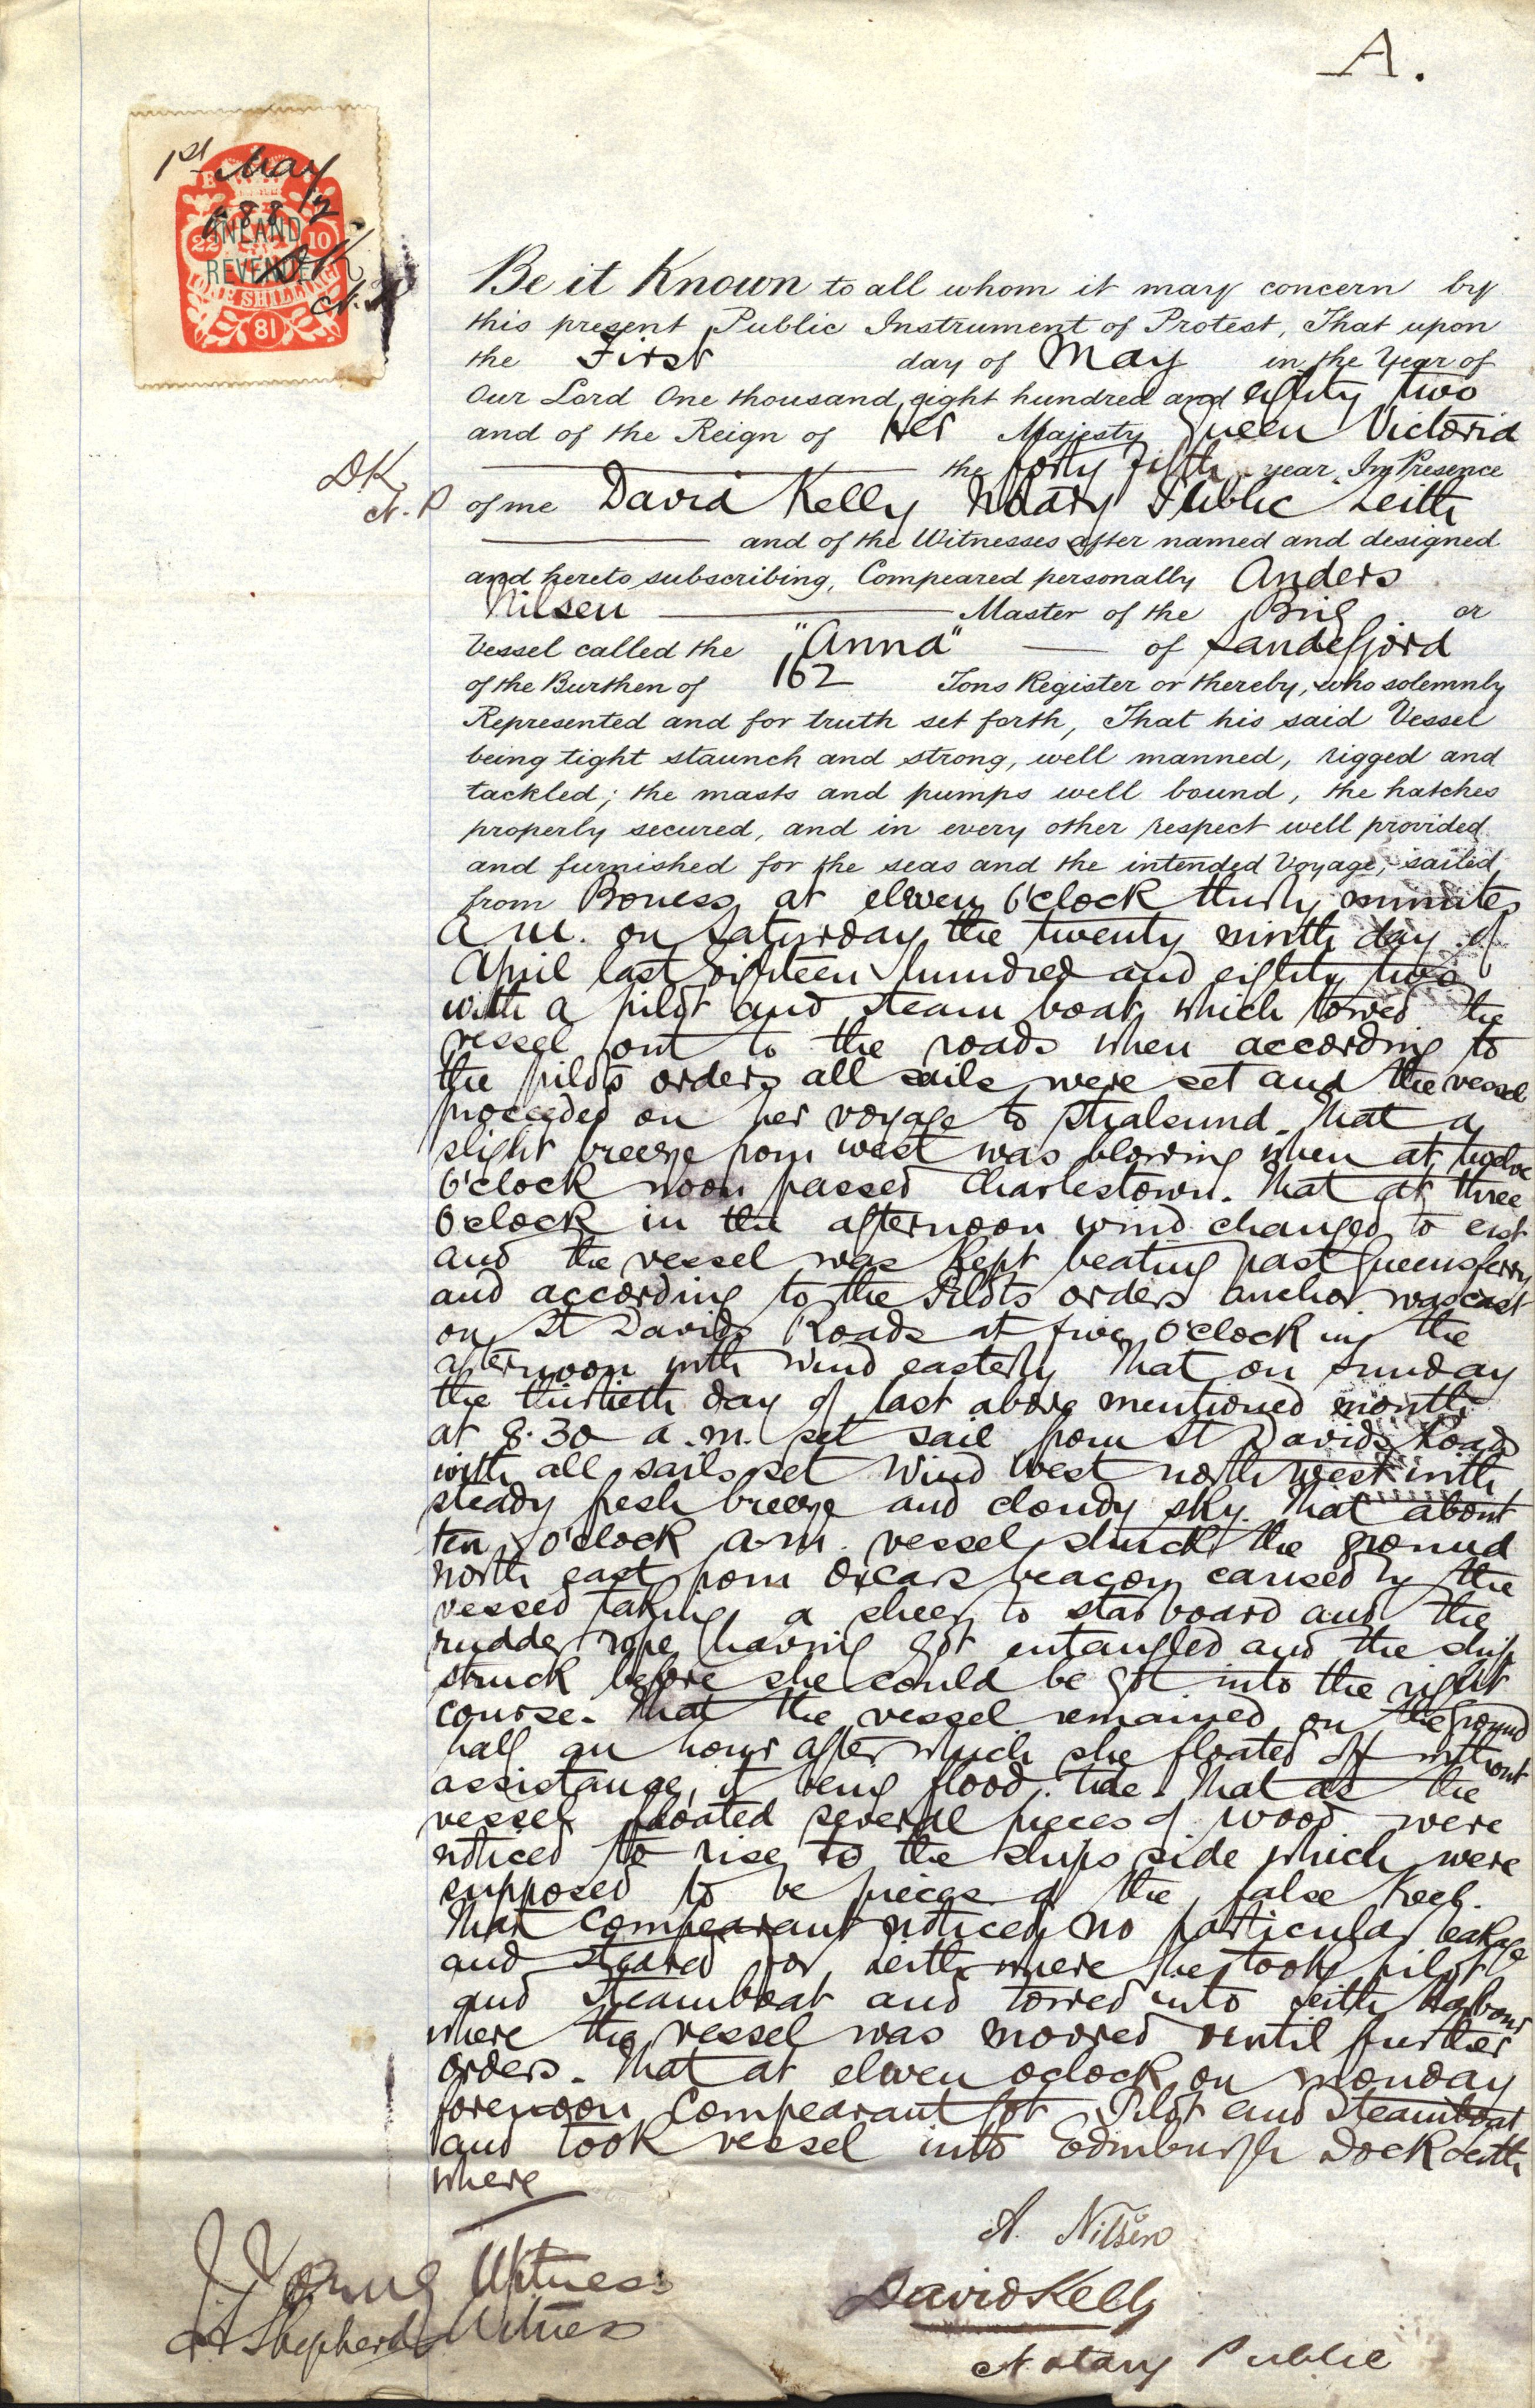 A.
1st May
1882
DK
N.P
INLAND
REVENUE
22 10
ONE SHILLING
81
Be it Known to all whom it may concern by
this present Public Instrument of Protest, That upon
the First day of May in the Year of
Our Lord One thousand eight hundred and eighty two
and of the Reign of Her Majesty Queen Victoria
the forty fifth year, In Presence
DK
N.P
of me David Kelly Notary Public Leith
and of the Witnesses after named and designed
and hereto subscribing, Compeared personally Anders
Nilsen Master of the Brig or
Vessel called the "Anna" of Sandefjord
of the Burthen of 162 Tons Register or thereby, who solemnly
Represented and for truth set forth, That his said Vessel
being tight staunch and strong, well manned, rigged and
tackled; the masts and pumps well bound, the hatches
properly secured, and in every other respect well provided
and furnished for the seas and the intended Voyage, sailed
from Boness at eleven O'clock thirty minutes
a m. on Saturday the twenty ninth day of
April last Eighteen hundred and eighty two
with a pilot and steam boat which towed the
vessel out to the roads when according to
the pilots orders all sails were set and the vessel
proceeded on her voyage to Stralsund. That a
slight breeze from west was blowing when at twelve
O'clock noon passed Charlestown. That at three
O'clock in the afternoon wind changed to east
and the vessel was kept beating past Queensferry
and according to the Pilots orders anchor was cast
on St Davids Roads at five O'clock in the
afternoon with wind easterly That on Sunday
the thirtieth day of last above mentioned month
at 8.30 a.m. set sail from St Davids Roads
with all sails set Wind West north west with
steady fresh breeze and cloudy sky. That about
ten O'clock a.m. vessel struck the ground
North east from Oxcars beacon caused by the
vessel taking a sheer to starboard and the
rudder rope having got entangled and the ship
struck before she could be got into the right
course. That the vessel remained on the ground
half an hour after which she floated off without
assistance, it being flood tide. That as the
vessel floated several pieces of wood were
noticed to rise to the ships side which were
supposed to be pieces of the false keel.
That Compearant noticed no particular leakage
and steared for Leith where he took pilot
and Steamboat and towed into Leith Harbour
where the vessel was moored until further
orders. That at eleven oclock on Monday
forenoon Compearant got Pilot and Steamboat
and took vessel into Edinburgh Dock Leith
where
A. Nilsen
J Young Witness
David Kelly
Shepherd Witness
Notary Public